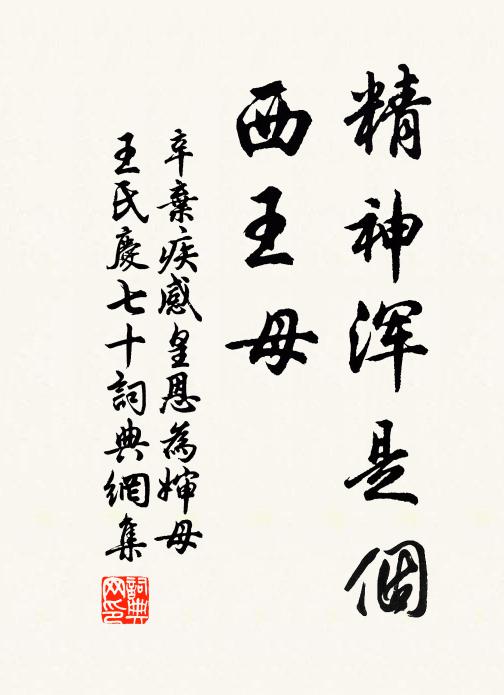 精神浑是個
西王母
辛棄疾感皇恩為婶母
王氏慶七十詞典網集
詞典
网印